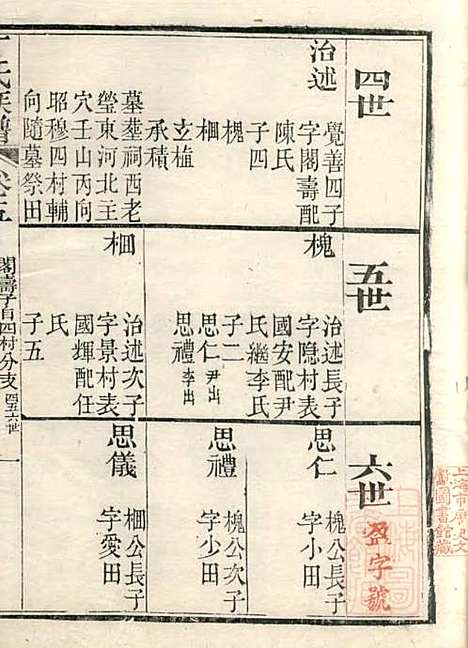 四世
治述
覺善四子
字閣壽配
陳氏
子四
槐
椢
玄植
承積
墓塟祠西老
瑩東河北主
穴壬山丙向
昭穆四村輔
向隨墓祭田
五世
槐
治述長子
字隱村表
國安配尹
氏繼李氏
子二
思仁尹出
思禮李出
椢
治述次子
字景村表
國輝配任
氏
子五
六世
思仁
槐公長子
字小田
思禮
槐公次子
字少田
思儀
椢公長子
字愛田
氏族譜
卷五
閣壽子百四村分支四五六世
一
字號
上海市歷史文
獻圖書館藏